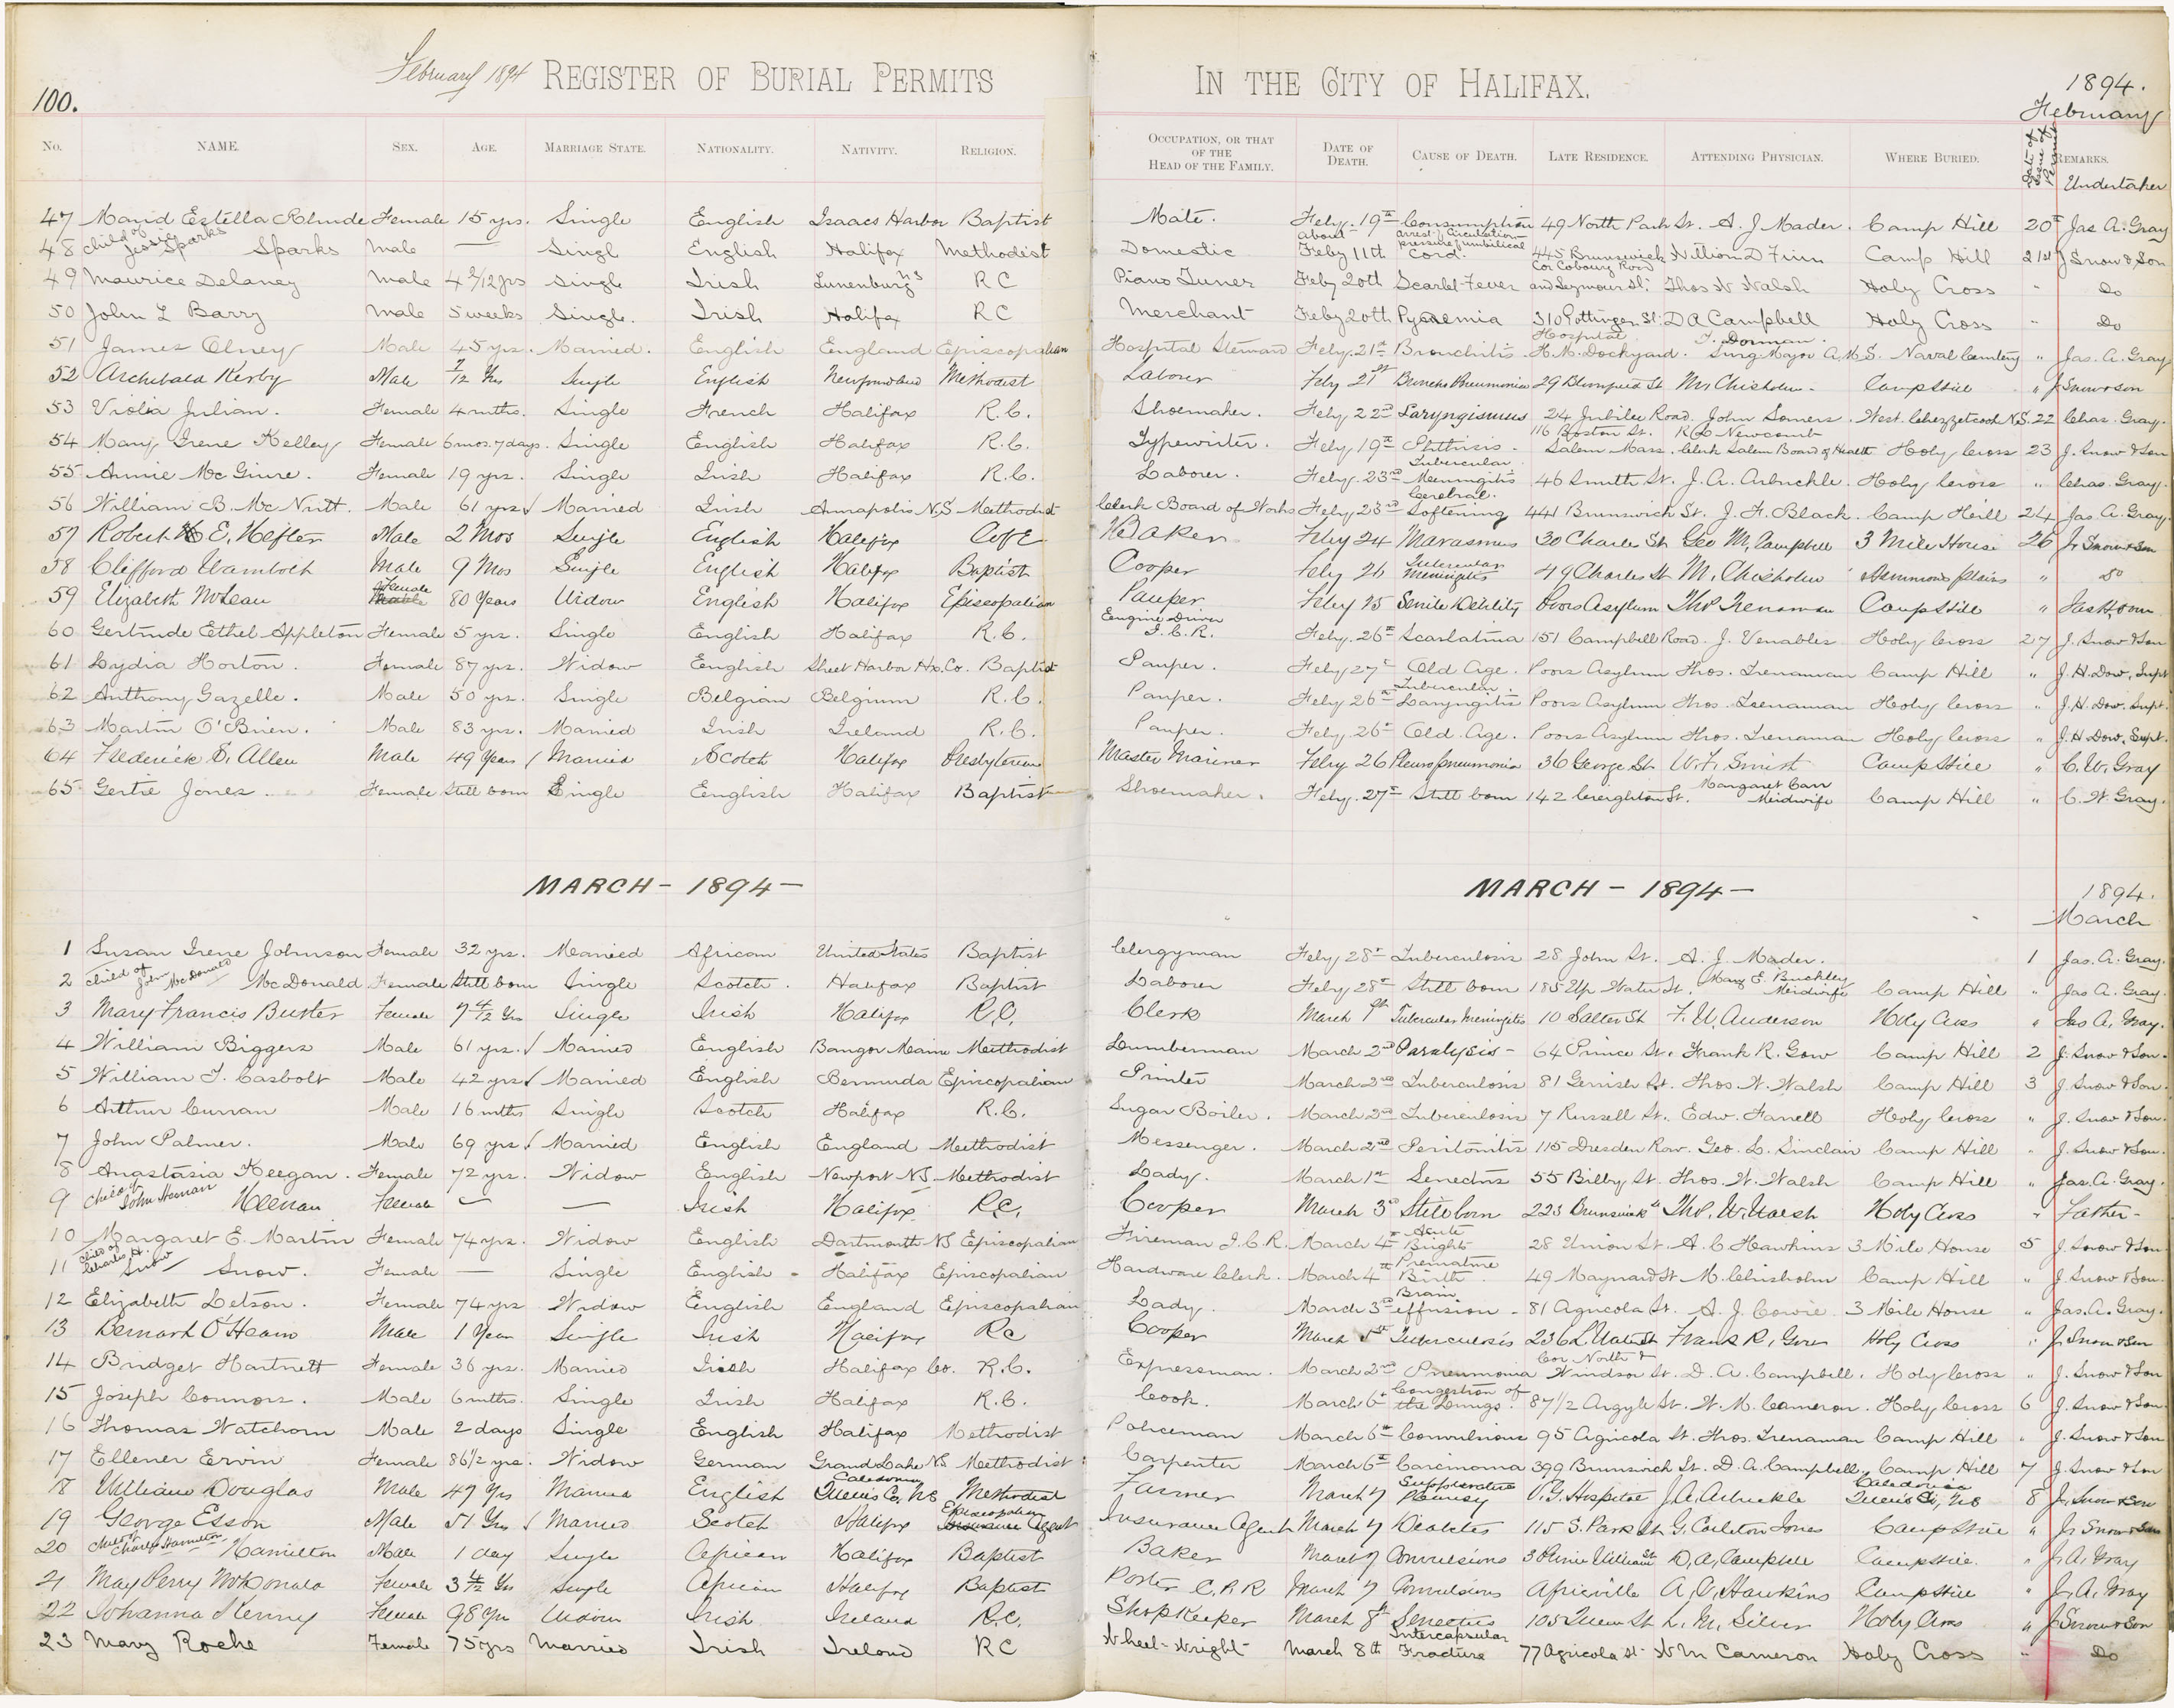 100.
February 1894 REGISTER OF BURIAL PERMITS IN THE CITY OF HALIFAX. 1894.
February
No. NAME. SEX. AGE. MARRIAGE STATE. NATIONALITY. NATIVITY. RELIGION. OCCUPATION, OR THAT OF THE HEAD OF THE FAMILY. DATE OF DEATH. CAUSE OF DEATH. LATE RESIDENCE. ATTENDING PHYSICIAN. WHERE BURIED. Date of Issue of Permit REMARKS.
Undertaker
47 Estella Female 15 yrs. Single English Isaacs Harbor Baptist Mate. Feby. 19th Consumption 49 North Park St. A. J. Mader. Camp Hill 20th Jas A. Gray
48 child of Jessie Sparks Sparks Male — Singl English Halifax Methodist Domestic about Feby 11th arrest of circulation pressure of umbilical Cord. 445 Brunswick William D Finn Camp Hill 21st J Snow & Son
49 Maurice Delaney Male 4 2/12 yrs Single Irish Lunenburg NS R C Piano Tuner Feby 20th Scarlet Fever Cor Cobourg Road and Seymour St. Thos W Walsh Holy Cross " Do
50 John L Barry Male 5 weeks Single. Irish Halifax R C Merchant Feby 20th Pyaemia 310 Pottinger St. D A Campbell Holy Cross " Do
51 James Olney Male 45 yrs. Married. English England Episcopalian Hospital Steward Feby. 21st Bronchitis Hospital H. M. Dockyard. Dorman. Surg Major A.M.S. Naval Cemtery " Jas. A. Gray
52 Archibald Kerby Male /12 Yrs Single English Newfoundland Methodist Laborer Feby 21st Broncho Pneumonia 29 St M. Chisholm. Camp Hill " J Snow & Son
53 Viola Julian. Female 4 mths. Single French Halifax R.C. Shoemaker. Feby 22nd Laryngismus 24 Jubilee Road. John Somers. West Chezzetcook N.S. 22 Chas. Gray.
54 Mary Irene Kelley Female 6 mos. 7 days. Single English Halifax R.C. Typewriter. Feby. 19th Phthisis. 116 Boston St. Salem Mass. R D Newcomb Clerk Salem Board of Health Holy Cross 23 J. Snow & Son
55 Annie McGinre. Female 19 yrs. Single Irish Halifax R.C. Laborer. Feby. 23rd Tubercular Meningitis 46 Smith St. J. A. Arbuckle. Holy Cross " Chas. Gray.
56 William B. McNutt. Male 61 yrs. / Married Irish Annapolis N.S Methodist Clerk Board of Works Feby 23rd Cerebral. Softening 441 Brunswick St. J. F. Black. Camp Hill 24 Jas. A. Gray.
57 Robert E. Hefler Male 2 Mos Single English Halifax C of E Baker Feby 24 Marasmus 30 Charles St Geo M. Campbell 3 Mile House 26 J. Snow & Son
58 Clifford Wambolt Male 9 Mos Single English Halifax Baptist Cooper Feby 26 Tubercular Meningitis 49 Charles St M. Chisholm Hammonds plains " Do
59 Elizabeth McLean Female 80 Years Widow English Halifax Episcopalian Pauper Feby 25 Senile Debility Poors Asylum Thos Trenaman Camp Hill "
60 Gertrude Ethel Appleton Female 5 yrs. Single English Halifax R.C. Engine Driver I.C.R. Feby. 26th Scarlatina 151 Campbell Road. J. Venables Holy Cross 27 J. Snow & Son
61 Lydia Horton. Female 87 yrs. Widow English Sheet Harbor Hx. Co. Baptist Pauper. Feby 27th Old Age. Poors Asylum Thos. Trenaman Camp Hill " J. H. Dow, Supt
62 Anthony Gazelle. Male 50 yrs. Single Belgian Belgium R.C. Pauper. Feby 26th Tubercular. Laryngitis Poors Asylum Thos. Trenaman Holy Cross " J. H. Dow. Supt.
63 Martin O'Brien. Male 83 yrs. Married Irish Ireland R.C. Pauper. Feby. 26th Old Age. Poors Asylum Thos. Trenaman Holy Cross " J. H Dow. Supt.
64 Frederick S. Allen Male 49 Years / Married Scotch Halifax Presbyterian Master Mariner Feby 26 Pleuro pneumonia 36 George St. W. F. Smith Camp Hill " C. W. Gray
65 Gertie Jones. Female Still born Single English Halifax Baptist Shoemaker. Feby. 27th Still born 142 Creighton St. Margaret Carr Meidwife Camp Hill " C. W. Gray.
MARCH – 1894 – MARCH – 1894 – 1894.
March
1 Susan Irene Johnson Female 32 yrs. Married African United States Baptist Clergyman Feby 28th Tuberculosis 28 John St. A. J. Mader. 1 Jas. A. Gray.
2 child of John McDonald McDonald Female Still born Single Scotch. Halifax Baptist Laborer Feby 28th Still born 185 Up Water St. Mary E. Brickley Meidwife Camp Hill " Jas A. Gray.
3 Mary Francis Buster Female 7 4/12 Yrs Single Irish Halifax R.C. Clerk March 1st Tubercular Meningitis 10 Salter St F. U. Anderson Holy Cross " Jas A. Gray.
4 William Biggers Male 61 yrs. / Married English Bangor Maine Methodist Lumberman March 2nd Paralysis – 64 Prince St. Frank R. Gow Camp Hill 2 J. Snow & Son.
5 William J. Casbolt Male 42 yrs / Married English Bermuda Episcopalian Printer March 2nd Tuberculosis 81 Gerrish St. Thos. W. Walsh Camp Hill 3 J. Snow & Son.
6 Arthur Curran Male 16 mths Single Scotch Halifax R.C. Sugar Boiler. March 2nd Tuberculosis 7 Russell St. Edw. Farrell Holy Cross " J. Snow & Son.
7 John Palmer. Male 69 yrs / Married English England Methodist Messenger. March 2nd Peritonitis 115 Dresden Row. Geo. L. Sinclair Camp Hill " J. Snow & Son.
8 Anastasia Keegan. Female 72 yrs. Widow English Newport N.S. Methodist Lady. March 1st Senectus 55 Bilby St. Thos. W. Walsh Camp Hill " Jas. A. Gray.
9 child of John Heenan Heenan Female — — Irish Halifax R.C. Cooper March 3rd Stillborn 223 Brunswick St Thos. W. Walsh Holy Cross " Father –
10 Margaret E. Martin Female 74 yrs. Widow English Dartmouth NS Episcopalian Fireman I.C.R. March 4th Acute Brights 28 Union St. A. C Hawkins 3 Mile House 5 J. Snow & Son.
11 child of Charles H. Snow Snow. Female — Single English – Halifax Episcopalian Hardware Clerk. March 4th Premature Birth 49 Maynard St M. Chisholm Camp Hill " J. Snow & Son.
12 Elizabeth Letson. Female 74 yrs Widow English England Episcopalian Lady. March 3rd Brain effusion – 81 Agricola St. A. J. Cowie. 3 Mile House " Jas. A. Gray.
13 Bernard O'Hearn Male 1 Year Single Irish Halifax RC Cooper March 5th Tuberculosis 236 L. Water St Frank R. Gow Holy Cross " J. Snow & Son
14 Bridget Hartnett Female 36 yrs. Married Irish Halifax Co. R.C. Expressman. March 2nd Pneumonia Cor North & Windsor St. D. A. Campbell. Holy Cross " J. Snow & Son
15 Joseph Connors. Male 6 mths. Single Irish Halifax R.C. Cook. March 6th Congestion of the Lungs. 87 1/2 Argyle St. W. M. Cameron. Holy Cross 6 J. Snow & Son.
16 Thomas Watchorn Male 2 days Single English Halifax Methodist Policeman March 6th Convulsions 95 Agricola St. Thos. Trenaman Camp Hill " J. Snow & Son
17 Ellener Ervin Female 86 1/2 yrs. Widow German Grand Lake NS Methodist Carpenter March 6th Carcinoma 399 Brunswick St. D. A. Campbell. Camp Hill 7 J. Snow & Son
18 William Douglas Male 47 Yrs Married English Caledonia Queens Co. NS Methodist Farmer March 7 Suppurative Pleurisy V. G. Hospital J. A. Arbuckle Caledonia Queens Co. NS 8 J. Snow & Son
19 George Esson Male 51 Yrs / Married Scotch Halifax Episcopalian Insurance Agent Insurance Agent March 7 Diabetes 115 S. Park St G. Carleton Jones Camp Hill " J. Snow & Son
20 child of Charles Hamilton Hamilton Male 1 day Single African Halifax Baptist Baker March 7 Convulsions 3 Prince William St D. A. Campbell Camp Hill. " J. A. Gray
21 May Perry McDonald Female 3 4/12 Yrs Single African Halifax Baptist Porter C.P.R March 7 Convulsions Africville A. C. Hawkins Camp Hill " J. A. Gray
22 Johanna Kenny Female 98 Yrs Widow Irish Ireland R.C. ShopKeeper March 8th Senectus 105 Queen St L. M. Silver Holy Cross " J Snow & Son
23 Mary Roche Female 75 yrs Married Irish Ireland RC Wheel-Wright March 8th Intercapsular Fracture 77 Agricola St W M Cameron Holy Cross " Do